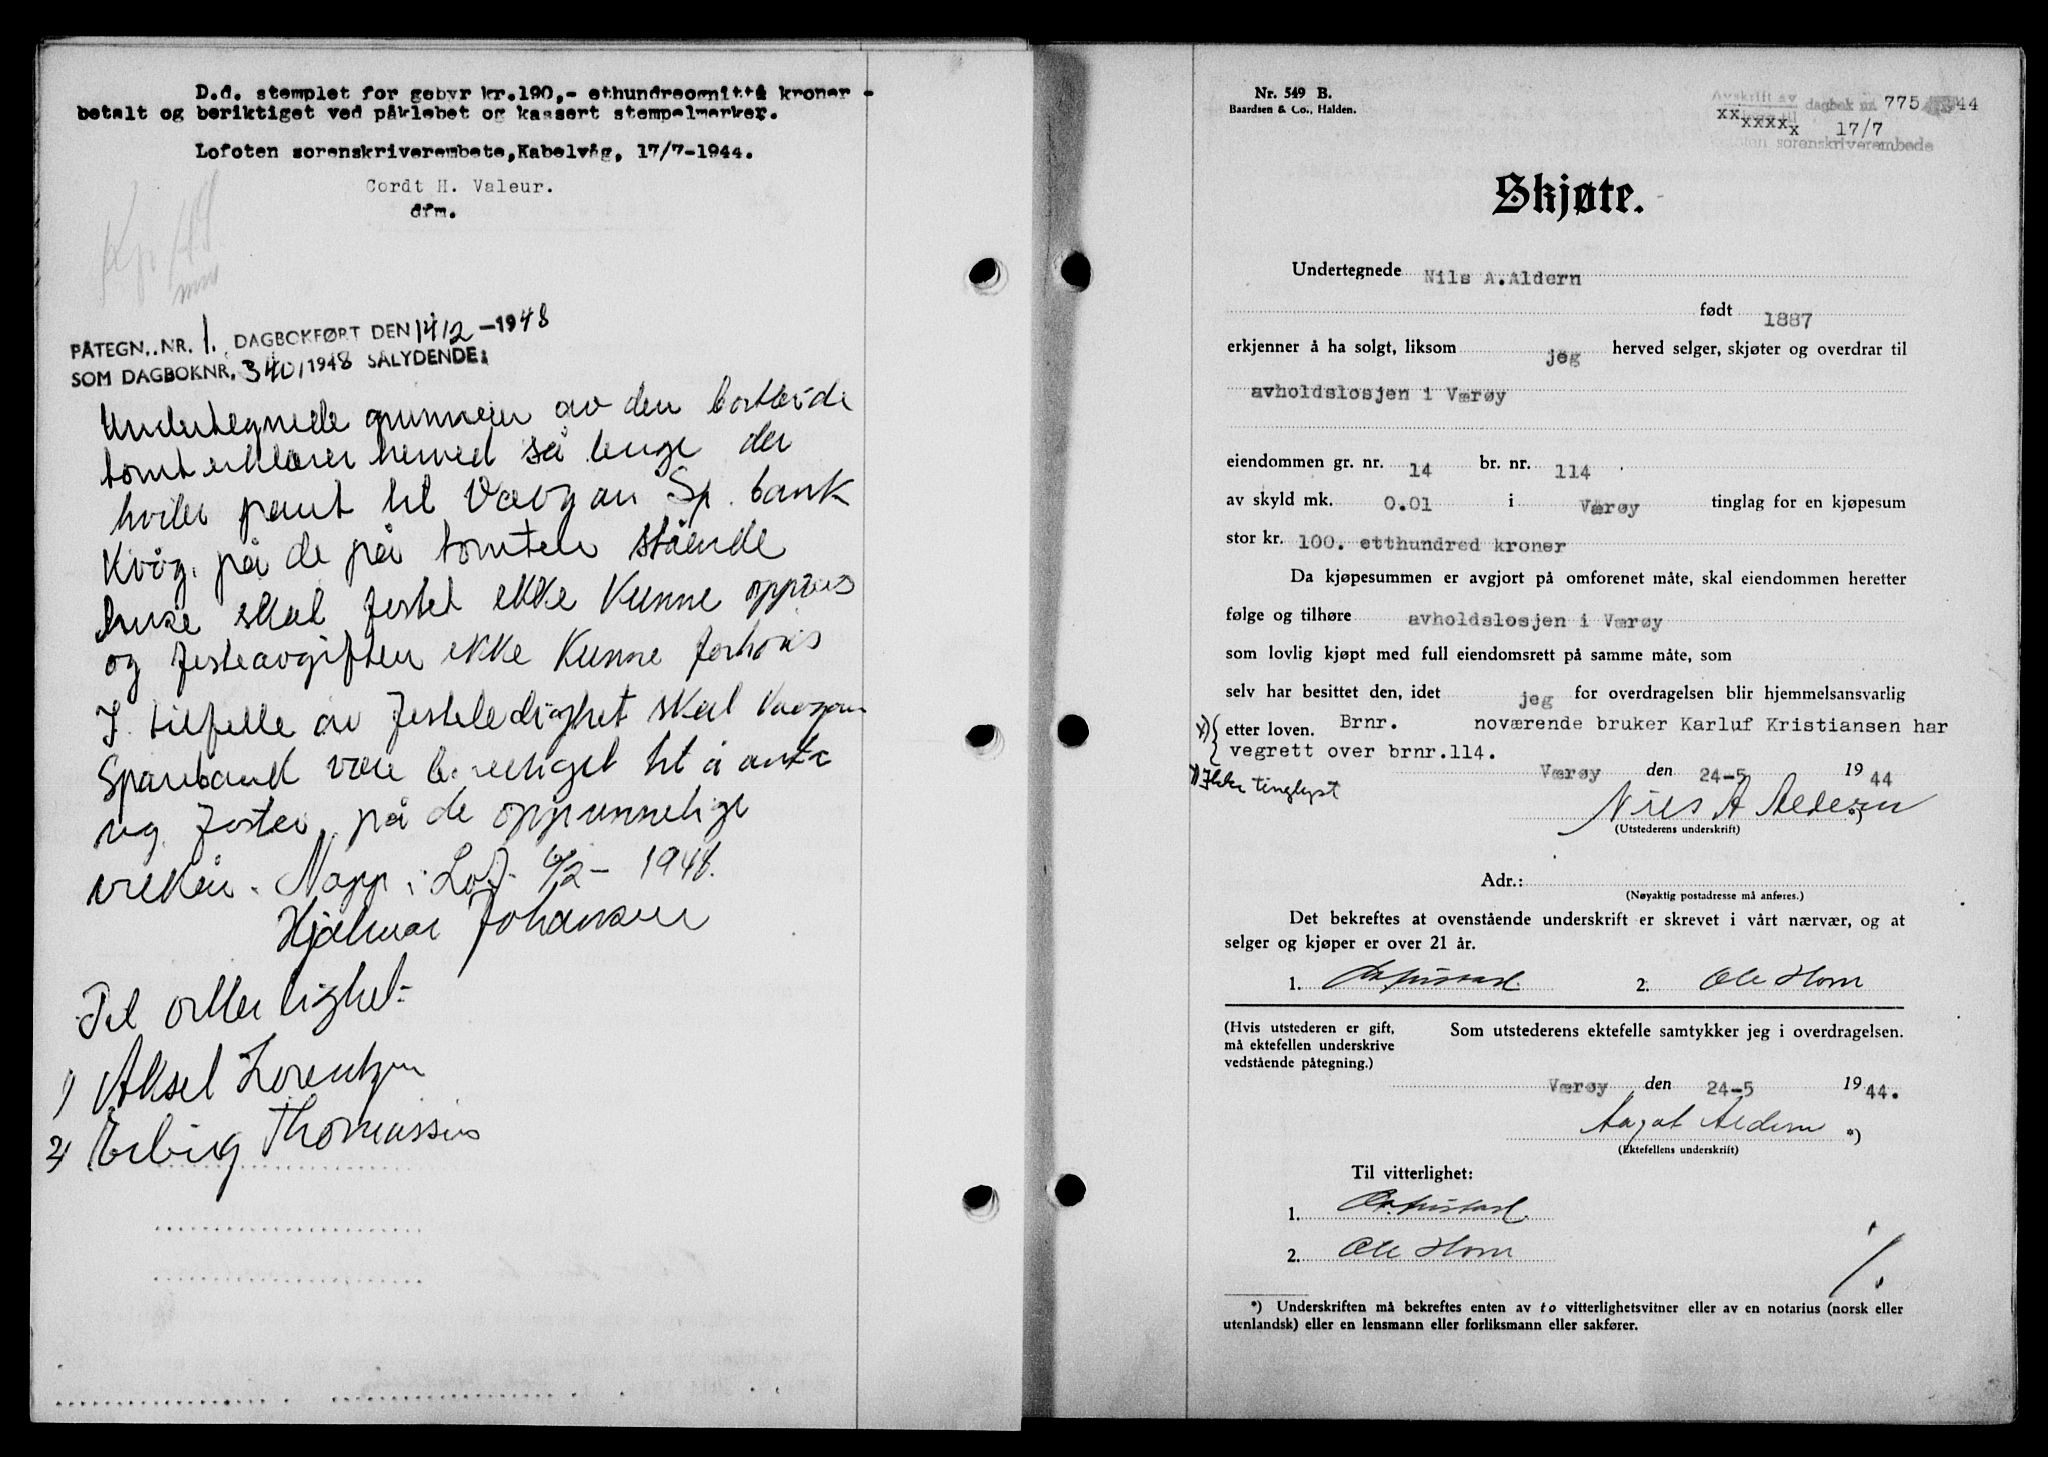 D.d. stemplet for gebyr kr.190,- ethundreognitti kroner -
betalt og beriktiget ved påklebet og kassert stempelmerker.
Lofoten sorenskriverembete, Kabelvåg, 17/7-1944.
Cordt H. Valeur.
dfm.
PÅTEGN. NR. 1. DAGBOKFØRT DEN 14/2-1948
SOM DAGBOKNR. 340/1948 SÅLYDENDE:
Undertegnede grunneier av den bortleide
tomt erklærer herved så lenge der
hviler pant til Vaagan Sp. bank
Kvåg. på de på tomten stående
huse skal festet ikke kunne oppsies
og festeavgiften ikke kunne forhøies
I tilfelle av festeledighet skal Vaagan
Sparebank være berettiget til å anta
ny fester på de opprunnelige
vilkår. Napp i Lof. 6/2- 1948.
Hjalmar Johansen
Til vitterlighet:
1) Aksel Lorentzen
2) Erling Thomassen
Nr. 549 B.
Baardsen & Co., Halden.
Avskrift av dagbok nr. 775 1944
xx xxxxx 17/7
Lofoten sorenskriverembede
Skjøte.
Undertegnede Nils A.Aldern
født 1887
erkjenner å ha solgt, liksom jeg herved selger, skjøter og overdrar til
avholdslosjen i Værøy
eiendommen gr. nr. 14 br. nr. 114
av skyld mk. 0.01 i Værøy tinglag for en kjøpesum
stor kr. 100. etthundred kroner
Da kjøpesummen er avgjort på omforenet måte, skal eiendommen heretter
følge og tilhøre avholdslosjen i Værøy
som lovlig kjøpt med full eiendomsrett på samme måte, som
selv har besittet den, idet jeg for overdragelsen blir hjemmelsansvarlig
x) etter loven. Brnr. noværende bruker Karluf Kristiansen har
vegrett over brnr.114.
Værøy den 24-5 1944
x) Ikke tinglyst
Nils A Aldern *)
(Utstederens underskrift)
Adr.:
(Nøyaktig postadresse må anføres.)
Det bekreftes at ovenstående underskrift er skrevet i vårt nærvær, og at
selger og kjøper er over 21 år.
1. 2. Ole Horn
(Hvis utstederen er gift, Som utstederens ektefelle samtykker jeg i overdragelsen.
må ektefellen underskrive
vedstående påtegning.)
Værøy den 24-5 1944.
Aagot Aldern *)
(Ektefellens underskrift)
Til vitterlighet:
1.
2. Ole Horn
*) Underskriften må bekreftes enten av to vitterlighetsvitner eller av en notarius (norsk eller
utenlandsk) eller en lensmann eller forliksmann eller sakfører.